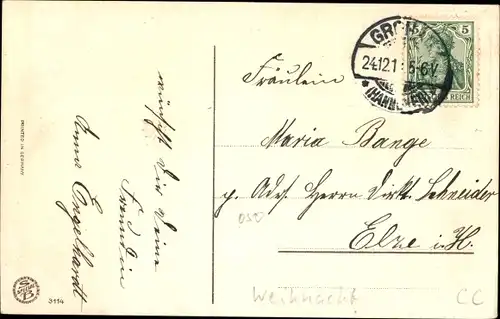 wünscht Dir Deine
Freundin
Anna Engelhardt
PRINTED IN GERMANY
3114
GRO
24.12.1 5-6 V
*(HANNOVER)*
5
REICH
Fräulein
Maria Bange
p. Adr. Herrn Dirk. Schneider
Elze i. H.
050
Weihnacht CC